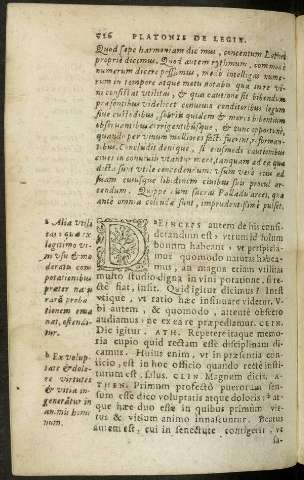 526 PLATONIS DE LEGIB.
Quod sæpe harmoniam dicimus, concentum Latinè
propriè dicimus. Quod autem rythmum, commodè
numerum dicere possumus, modò intelligas nume-
rum in tempore atque motu notato qua iure vi-
ni consistat utilitas, & qua cautione sit bibendum
præsentibus videlicet conuiuii conditoribus legum
siue custodibus, sobriis quidem & moris bibentium
obseruantibus corrigentibúsque, & tunc opportunè,
quando per vinum meliores fieri
tibus. Concludit denique, si eiusmodi cautionibus
ciues in conuiuiis vtantur mero, tanquam ad ea quæ
dicta sunt utile concedendum: vsum verò eius ad
suam cuiusque libidinem ciuibus suis procul ar-
cendum. Quippe cum sacra Palladis ares, qua
ante omnia colenda sunt, imprudentissimè pulset.
a Alia vtili
tas: quæ ex
legitimo vi-
ni vsu & mo
deratis com
potationibus
præter natu
rarū proba
tionem ema
nat, ostendi-
tur.
b Ex volup-
tate & dolo-
re virtutes
& vitia in-
generātur in
animis homi
num.
DEINCEPS autem de his consi-
derandum est, vtrum id solum
bonum habeant, vt perspicia-
mus quomodo naturas habea-
mus, an magna etiam vtilitas
multo studio digna in vini potatione, si re-
ctè fiat, insit. Quid igitur dicimus? Inest
vtique, vt ratio hæc insinuare videtur. V-
bi autem, & quomodo, attentè obsecro
audiamus: ne ex ea re præpediamur. CLIN.
Dic igitur. ATH. Repetere itaque memo-
ria cupio quid rectam esse disciplinam di-
camus. Huius enim, vt in præsentia con-
iicio, est in hoc officio quando rectè insti-
tutum est, salus. CLIN. Magnum dicis. A-
THEN. Primum profectò puerorum sen-
sum esse dico voluptatis atque doloris: at-
que hæc duo esse in quibus primùm vir-
tus & vitium animo innascuntur. Beatus
autem est, cui in senectute contigerit, vt
sa-